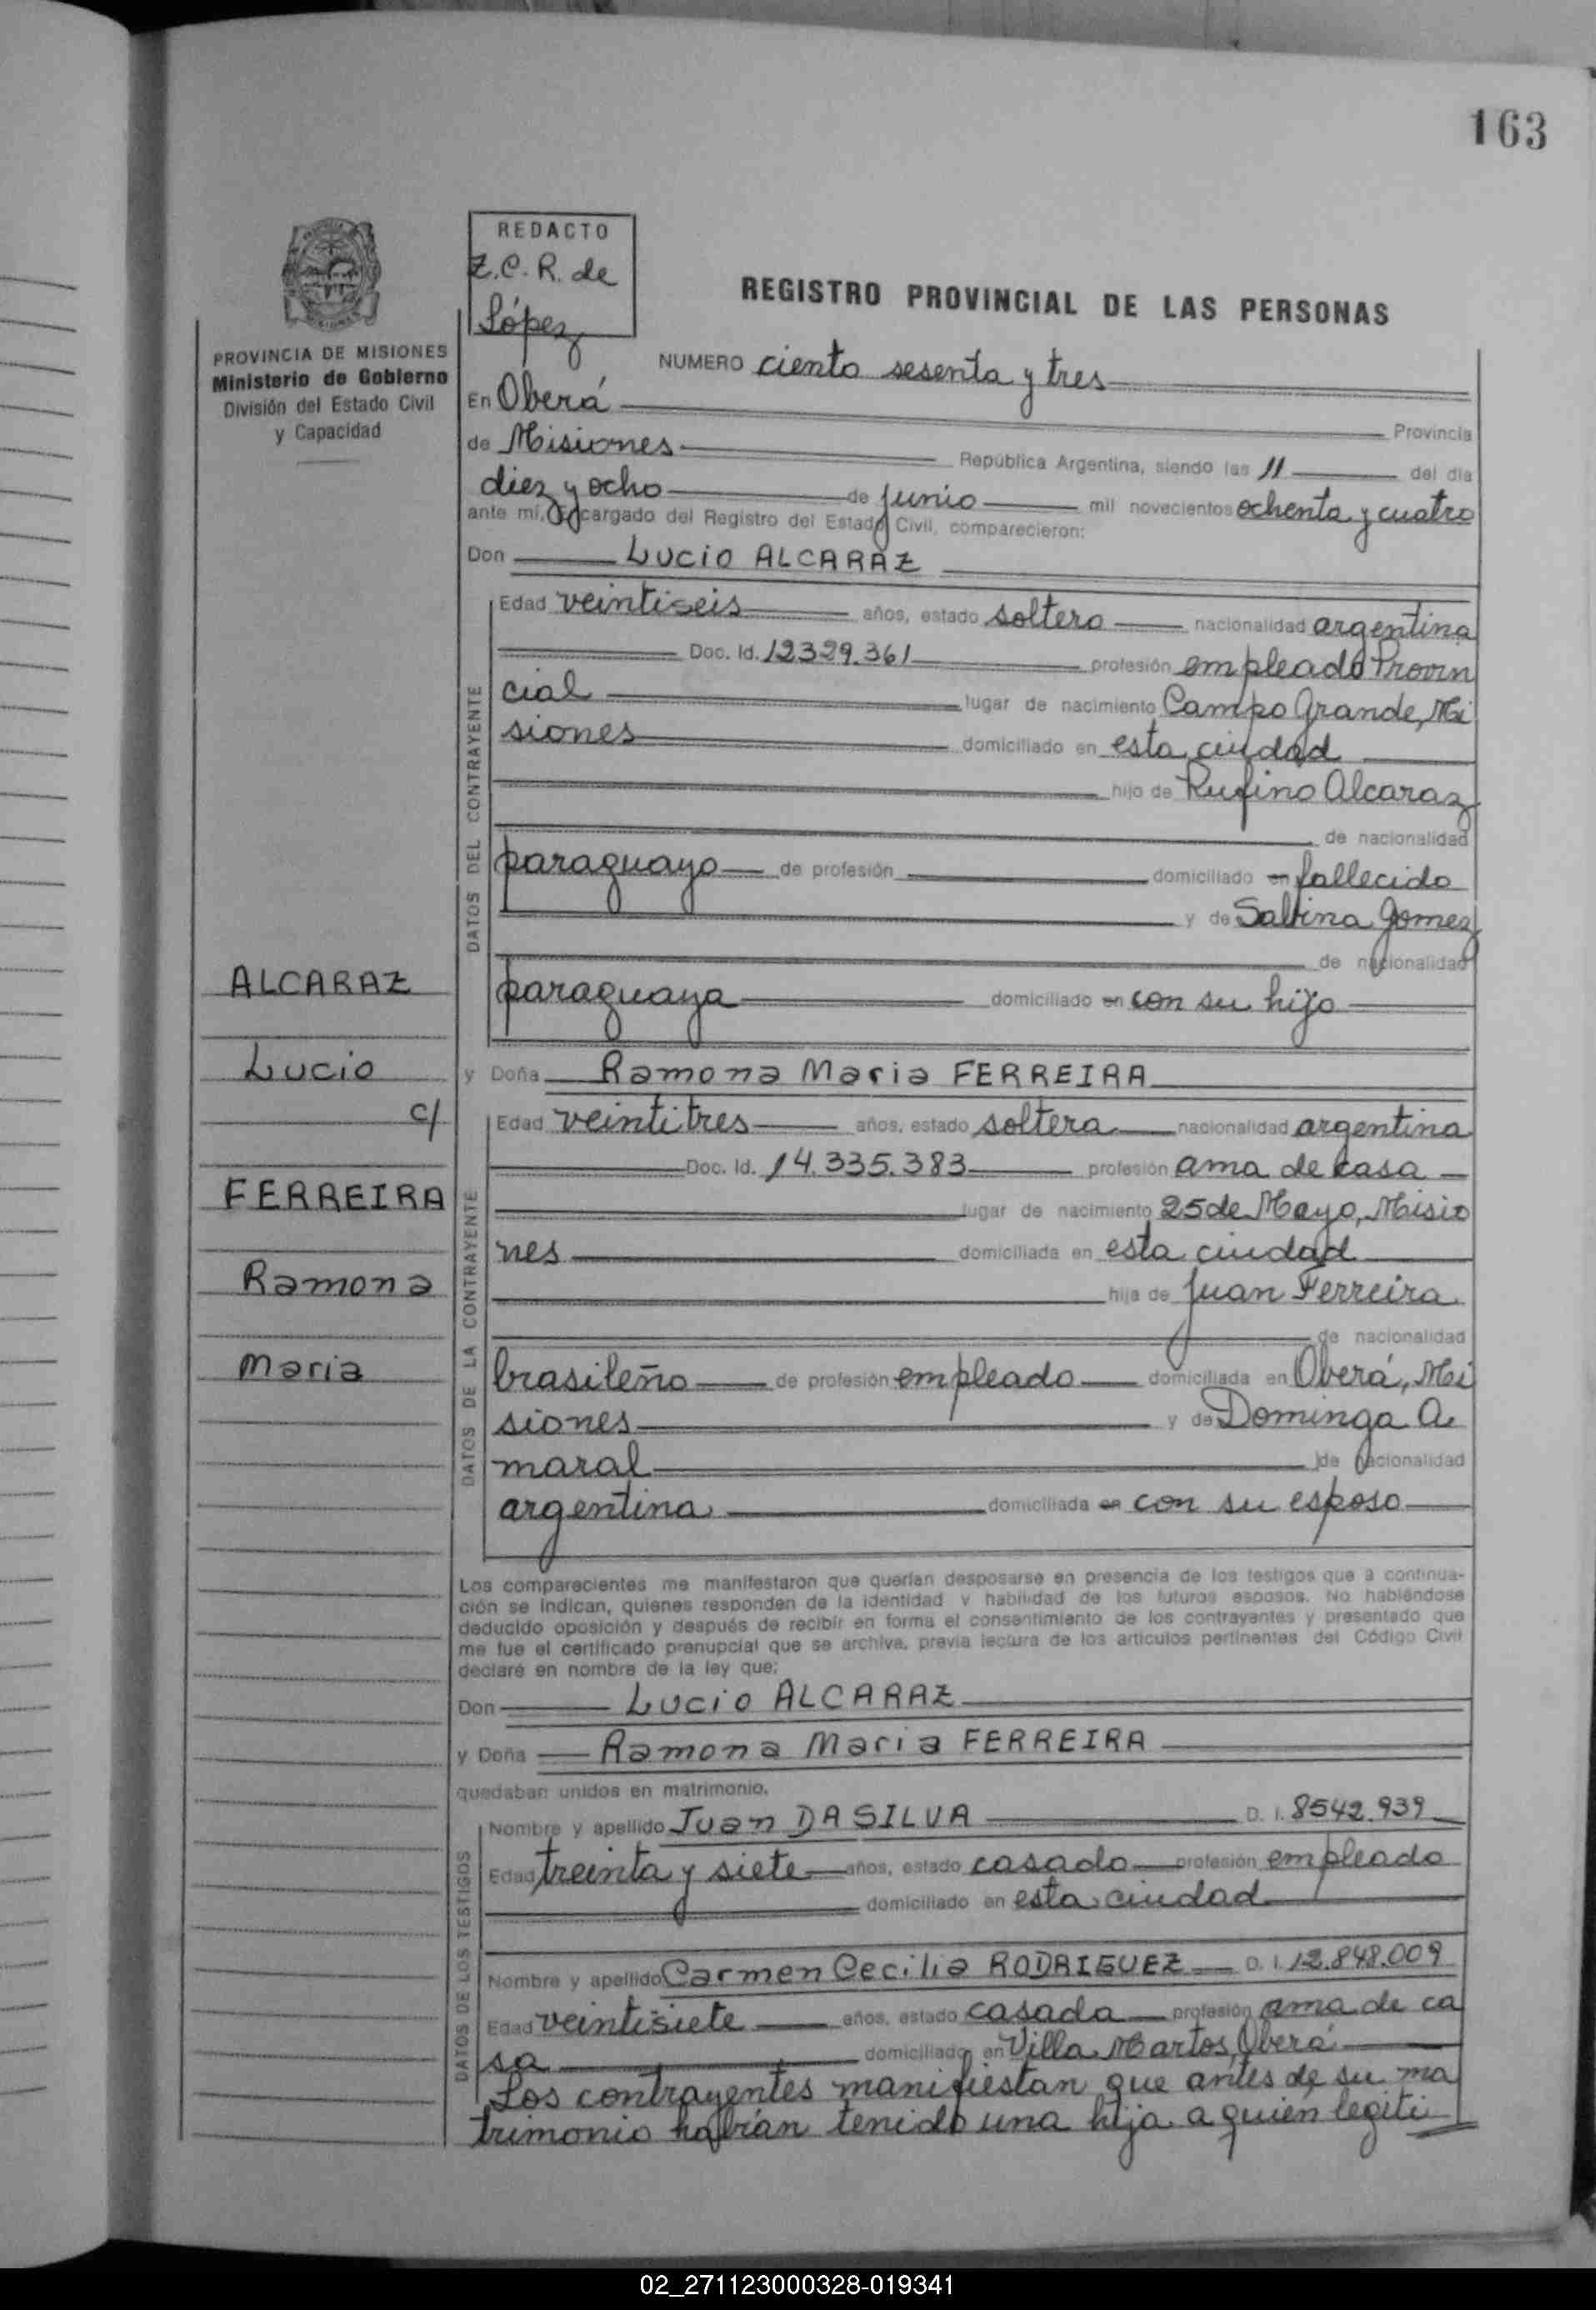 163
REDACTO
Z.C.R. de
López
REGISTRO PROVINCIAL DE LAS PERSONAS
PROVINCIA DE MISIONES
Ministerio de Gobierno
División del Estado Civil
y Capacidad
NUMERO ciento sesenta y tres
En Oberá
Provincia
de Misiones República Argentina, siendo las 11 del día
diez y ocho de junio mil novecientos ochenta y cuatro
ante mí, Encargado del Registro del Estado Civil, comparecieron:
Don Lucio ALCARAZ
DATOS DEL CONTRAYENTE
Edad veintiseis años, estado soltero nacionalidad argentina
Doc. Id. 12329.361 profesión empleado Provin
cial lugar de nacimiento Campo Grande, Mi
siones domiciliado en esta ciudad
hijo de Rufino Alcaraz
de nacionalidad
paraguayo de profesión domiciliado en fallecido
y de Sabina Gomez
de nacionalidad
paraguaya domiciliado en con su hijo
ALCARAZ
Lucio
c/
FERREIRA
Ramona
Maria
y Doña Ramona Maria FERREIRA
DATOS DE LA CONTRAYENTE
Edad veintitres años, estado soltera nacionalidad argentina
Doc. Id. 14.335.383 profesión ama de casa
lugar de nacimiento 25 de Mayo, Misio
nes domiciliada en esta ciudad
hija de Juan Ferreira
de nacionalidad
brasileño de profesión empleado domiciliada en Oberá, Mi
siones y de Dominga A
maral de nacionalidad
argentina domiciliada en con su esposo
Los comparecientes me manifestaron que querían desposarse en presencia de los testigos que a continua-
ción se indican, quienes responden de la identidad y habilidad de los futuros esposos. No habiéndose
deducido oposición y después de recibir en forma el consentimiento de los contrayentes y presentado que
me fue el certificado prenupcial que se archiva, previa lectura de los artículos pertinentes del Código Civil
declaré en nombre de la ley que:
Don Lucio ALCARAZ
y Doña Ramona Maria FERREIRA
quedaban unidos en matrimonio.
DATOS DE LOS TESTIGOS
Nombre y apellido Juan DA SILVA D. I. 8542.939
Edad treinta y siete años, estado casado profesión empleado
domiciliado en esta ciudad
Nombre y apellido Carmen Cecilia RODRIGUEZ D. I. 12.848.009
Edad veintisiete años, estado casada profesión ama de ca
sa domiciliado en Villa Martos, Oberá
Los contrayentes manifiestan que antes de su ma
trimonio habían tenido una hija a quien legiti
02_271123000328-019341